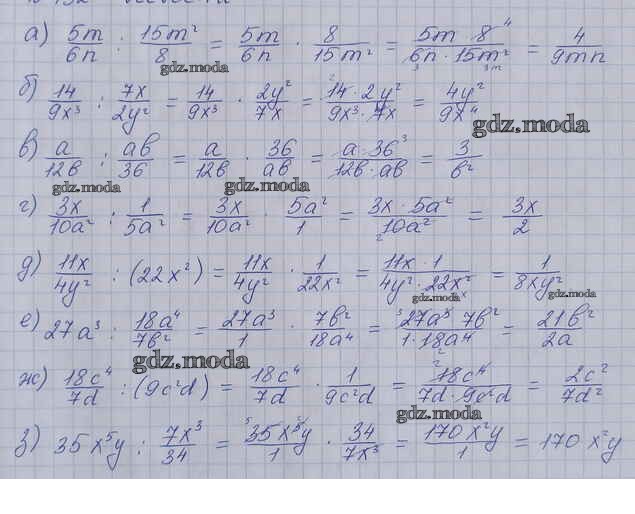 а) 5m/6n : 15m²/8 = 5m/6n · 8/15m² = 5m 8/6n · 15m² = 4/9mn
gdz.moda
б) 14/9x³ : 7x/2y² = 14/9x³ · 2y²/7x = 14 · 2y²/9x³ · 7x = 4y²/9x⁴
gdz.moda
в) a/12b : ab/36 = a/12b · 36/ab = a · 36/12b · ab = 3/b²
gdz.moda gdz.moda
г) 3x/10a² : 1/5a² = 3x/10a² · 5a²/1 = 3x · 5a²/10a² = 3x/2
д) 11x/4y² : (22x²) = 11x/4y² · 1/22x² = 11x · 1/4y² · 22x² = 1/8xy²
gdz.moda gdz.moda
е) 27a³ : 18a⁴/7b² = 27a³/1 · 7b²/18a⁴ = 27a³ 7b²/1 · 18a⁴ = 21b²/2a
gdz.moda
ж) 18c⁴/7d : (9c²d) = 18c⁴/7d · 1/9c²d = 18c⁴/7d · 9c²d = 2c²/7d²
gdz.moda
з) 35x⁵y : 7x³/34 = 35x⁵y/1 · 34/7x³ = 170x²y/1 = 170x²y